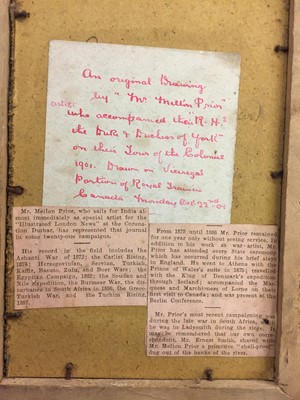 An original Drawing
by "Mr Mellon Prior"
artist
who accompanied the "R.H.s
the Duke & Duchess of York"
on their Tour of the Colonies
1901. Drawn on Viceregal
portion of Royal Train in
Canada Monday Oct 22nd 01
Mr. Mellon Prior, who sails for India al-
most immediately as special artist for the
"Illustrated London News" at the Corona-
tion Durbar, has represented that journal
in some twenty-one campaigns.
His record in the field includes the
Ashanti War of 1873; the Carlist Rising,
1874; Herzegovinian, Servian, Turkish,
Kaffir, Basuto, Zulu, and Boer Wars; the
Egyptian Campaign, 1882; the Soudan and
Nile Expedition, the Burmese War, the dis-
turbances in South Africa in 1896, the Greco-
Turkish War, and the Tochim Rising,
1897.
From 1873 until 1893 Mr. Prior remained
for one year only without seeing service. In
addition to his work as war-artist, Mr.
Prior has attended every State ceremony
which has occurred during his brief stay
in England. He went to Athens with the
Prince of Wales's suite in 1875; travelled
with the King of Denmark's expedition
through Iceland; accompanied the Mar-
quess and Marchioness of Lorne on their
first visit to Canada; and was present at the
Berlin Conference.
Mr. Prior's most recent campaigning was
during the late war in South Africa,
he was in Ladysmith during the siege. It
may be remembered that our own corre-
spondent, Mr. Ernest Smith, shared with
Mr. Mellon Prior a primitive "shell-proof"
dug out of the banks of the river.